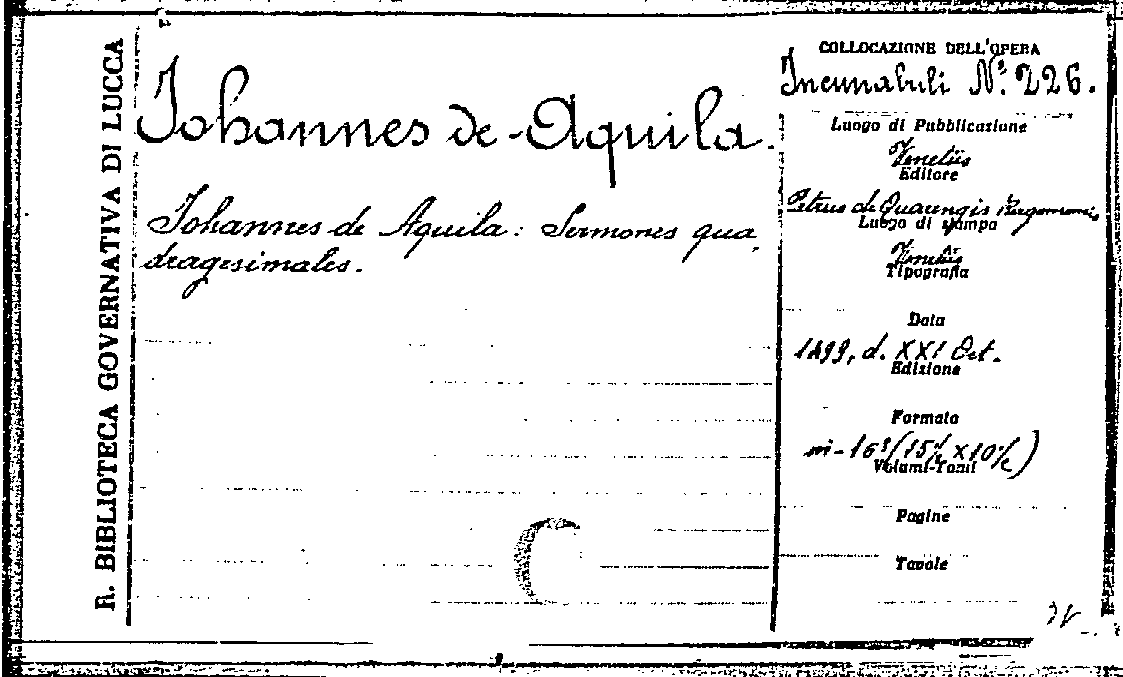 R. BIBLIOTECA GOVERNATIVA DI LUCCA
Johannes de-Aquila.
Johannes de Aquila: Sermones qua
dragesimales.
COLLOCAZIONE DELL'OPERA
Incunabuli N.º 226.
Luogo di Pubblicazione
Venetiis
Editore
Petrus de Quarengis Bergomensis
Luogo di stampa
Venetiis
Tipografia
Data
1499, d. XXI Oct.
Edizione
Formato
in-16º (15 c/ x 10 c/)
Volumi-Tomi
Pagine
Tavole